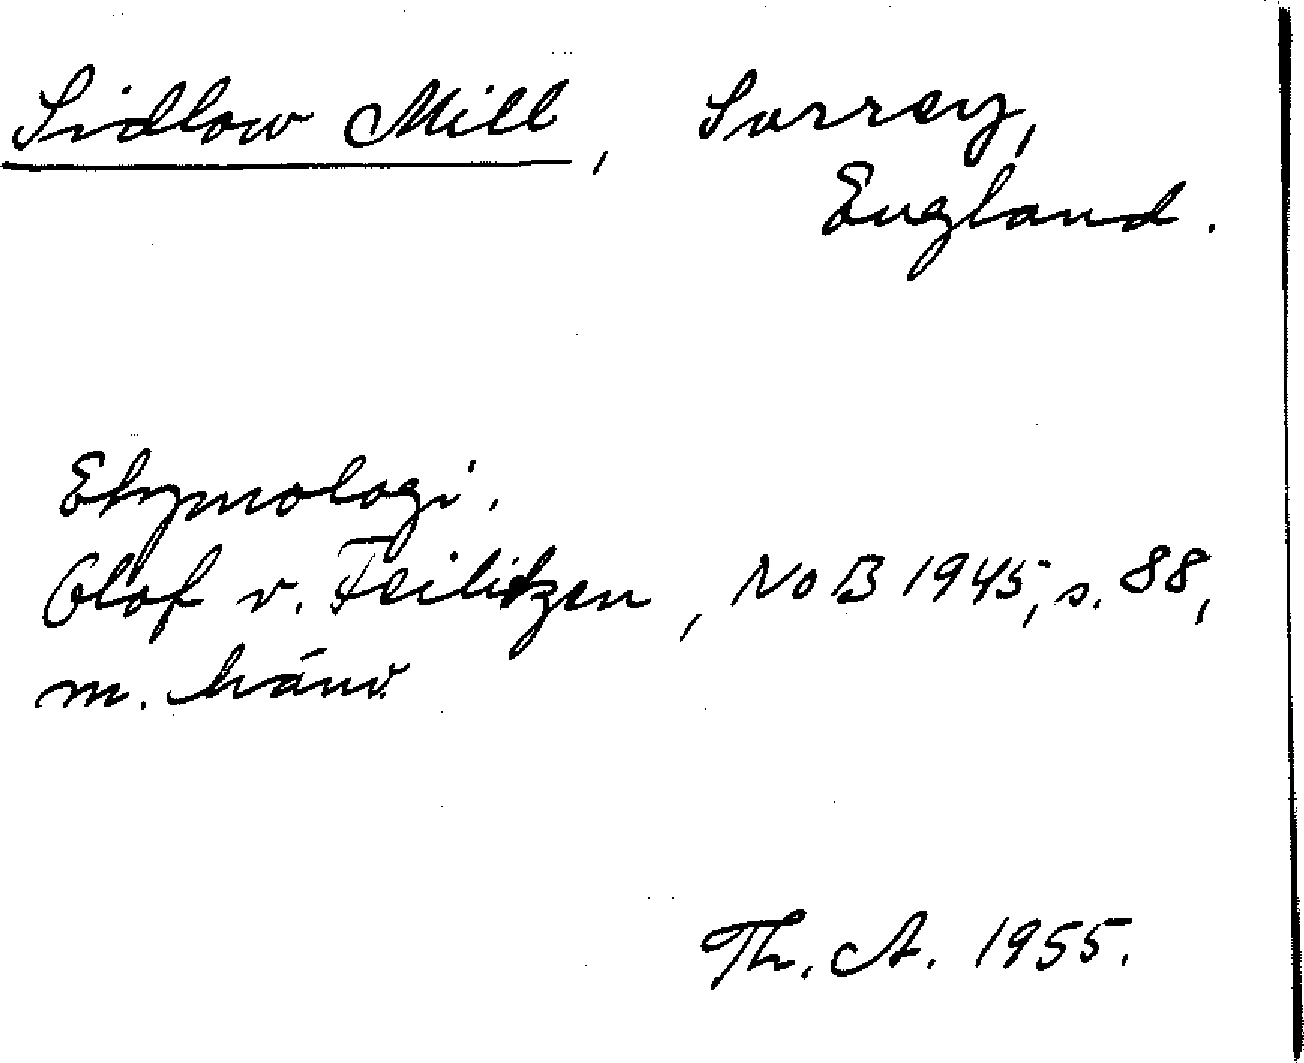 Sidlow Mill, Surrey,
England.
Etymologi.
Olof v. Feilitzen, NoB 1945, s. 88,
m. hänv.
Th. A. 1955.